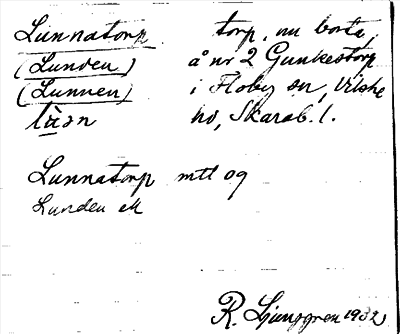 Lunnatorp torp, nu borta,
(Lunden) å nr 2 Gunkestorp
(Lunnen) i Floby sn, Vilske
lùsn hd, Skarab. l.
Lunnatorp mtl og
Lunden ek
R. Ljunggren 1932